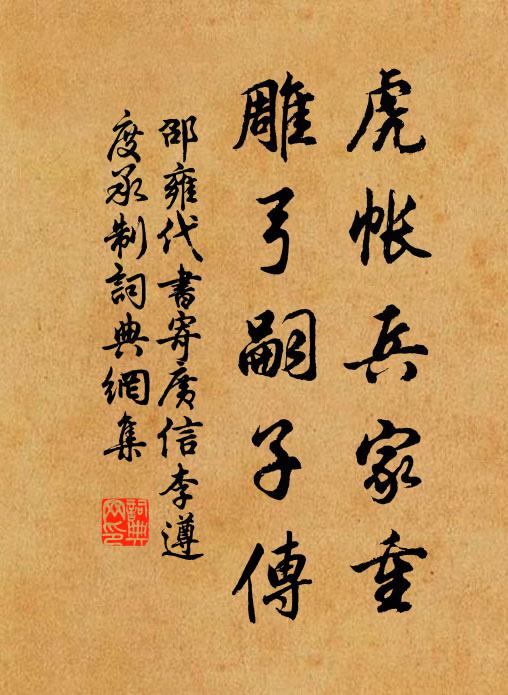 虎帐兵家重
雕弓嗣子傳
邵雍代書寄廣信李遵
度承制詞典網集
詞典
网印